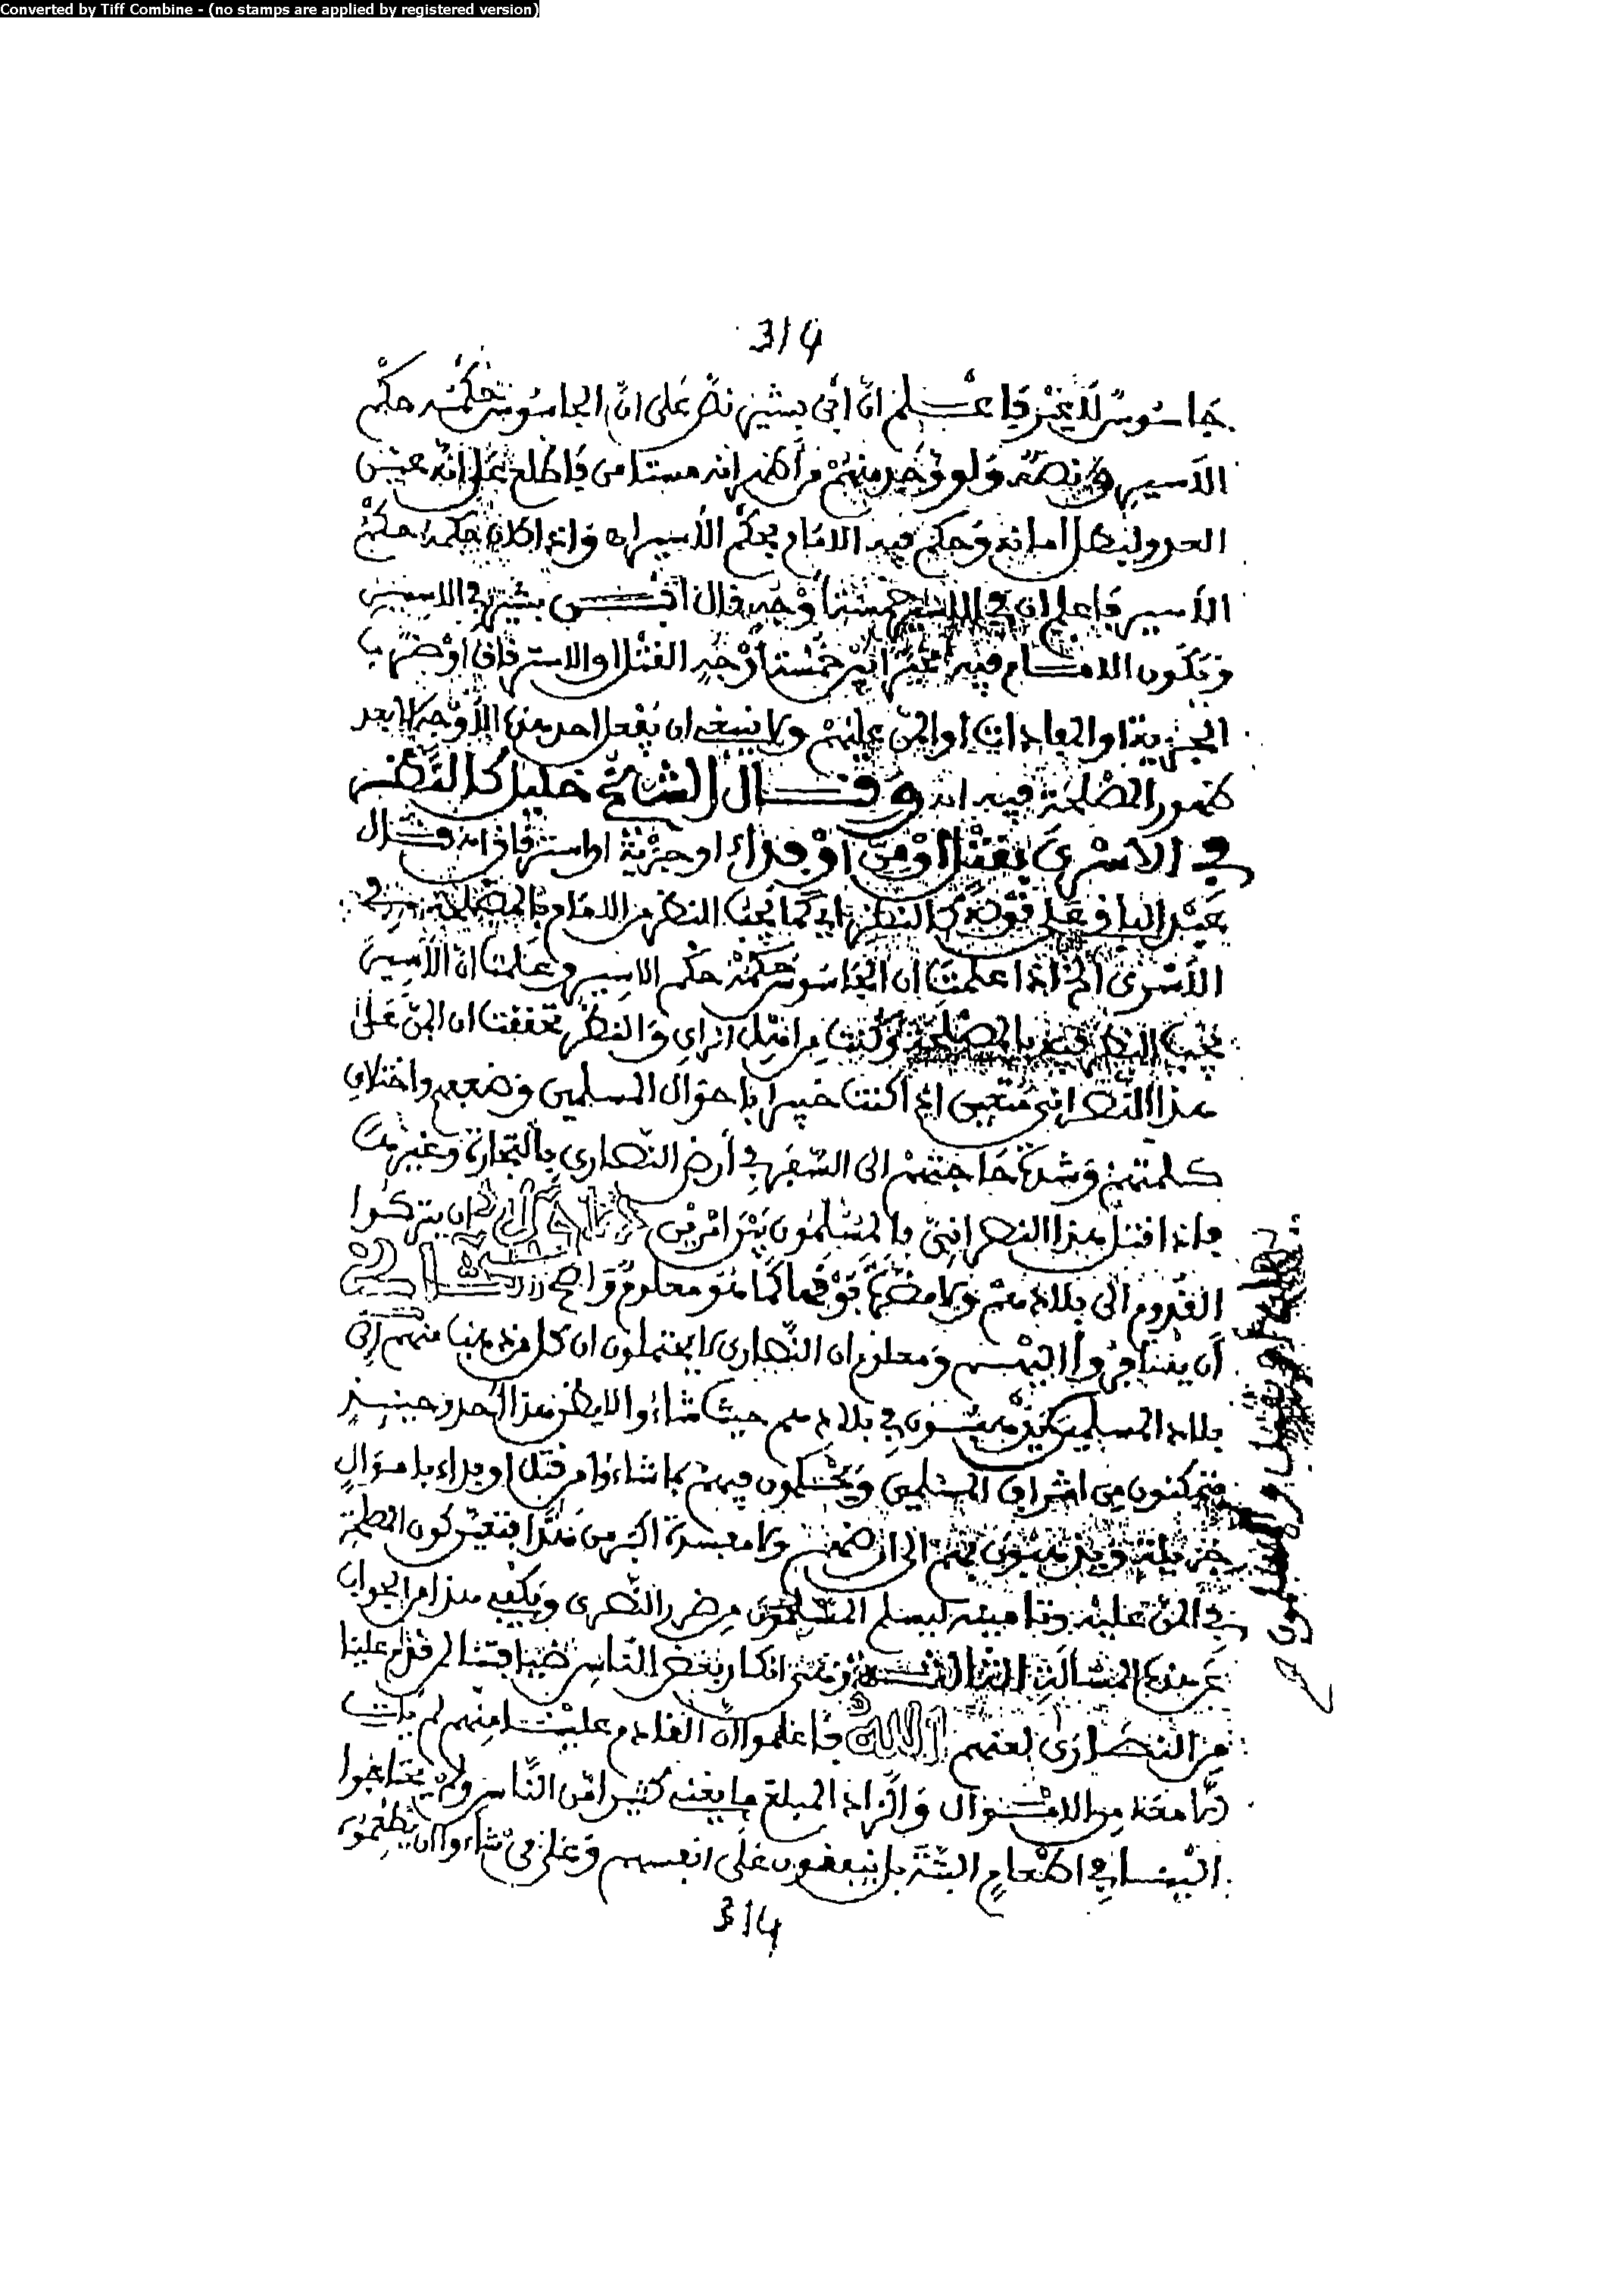 Converted by Tiff Combine - (no stamps are applied by registered version)
314
جاسوس لا غير فاعلم ان ابن بشير نص على ان الجاسوس حكمه حكم
الأسير ونصه ولو وجد منهم من اظهر انه مستامن فاطلع على انه عين
العدو لبطل امانه وحكم فيه الامام بحكم الأسير اه واذا كان حكمه حكم
الأسير فاعلم ان في الاسير خمسة اوجه قال ابن بشير في الاسير
ويكون الامام فيه مخير ابين خمسة اوجه القتل او الاسترقاق او ضرب
الجزية او المفادات او المن عليهم ولا ينبغي ان يفعل احد هذه الأوجه الا بعد
ظهور المصلحة فيه اه وقال الشيخ خليل كالنظر
في الاسرى بقتل او من او فداء او جزية او استرقاق اه قال
عبد الباقي على قوله كالنظر اي كما يجب النظر من الامام بالمصلحة في
الأسرى الخ اذا علمت ان الجاسوس حكمه حكم الاسير وعلمت ان الأسير
يجب النظر فيه بالمصلحة وكنت من اهل الراي والنظر تحققت ان المن على
هذا النصراني متعين اذ اكنت خبيرا باحوال المسلمين وضعفهم واختلاف
كلمتهم وشدة حاجتهم الى السفر في أرض النصارى بالتجارة وغيرها
فاذا قتل هذا النصراني فالمسلمون بين امرين ان يتركوا
القدوم الى بلادهم ولا مضرة فوقها كما هو معلوم واضح
أن يسافروا اليهم ومعلوم ان النصارى لا يحتملون ان كل من ذهب منهم الى
بلاد المسلمين يذهبون في بلادهم حيث شاءوا الا يظن هذا احد وحينئذ
فيتمكنون من اشراف المسلمين ويحكمون فيهم بما شاءوا من قتل او فداء باموال
جزيلة ويذهبون بهم الى ارضهم ولا مفسدة اكبر من هذا فتعين كون المصلحة
في المن عليه وتامينه ليسلم المسلمون من ضرر النصرى ويكفي هذا من الجواب
عن هذه المسألة الثالثة وهي انكار بعض الناس ضيافتنا لمن قدم علينا
من النصارى لعنهم الله فاعلموا ان القادم علينا منهم لم يات
الا معه من الاموال والزاد المبلغ ما يغني كثيرا من الناس ولم يحتاجوا
الينا في الطعام البتة بل ينفقون على انفسهم وعلى من شاءوا ان يطعموه
314